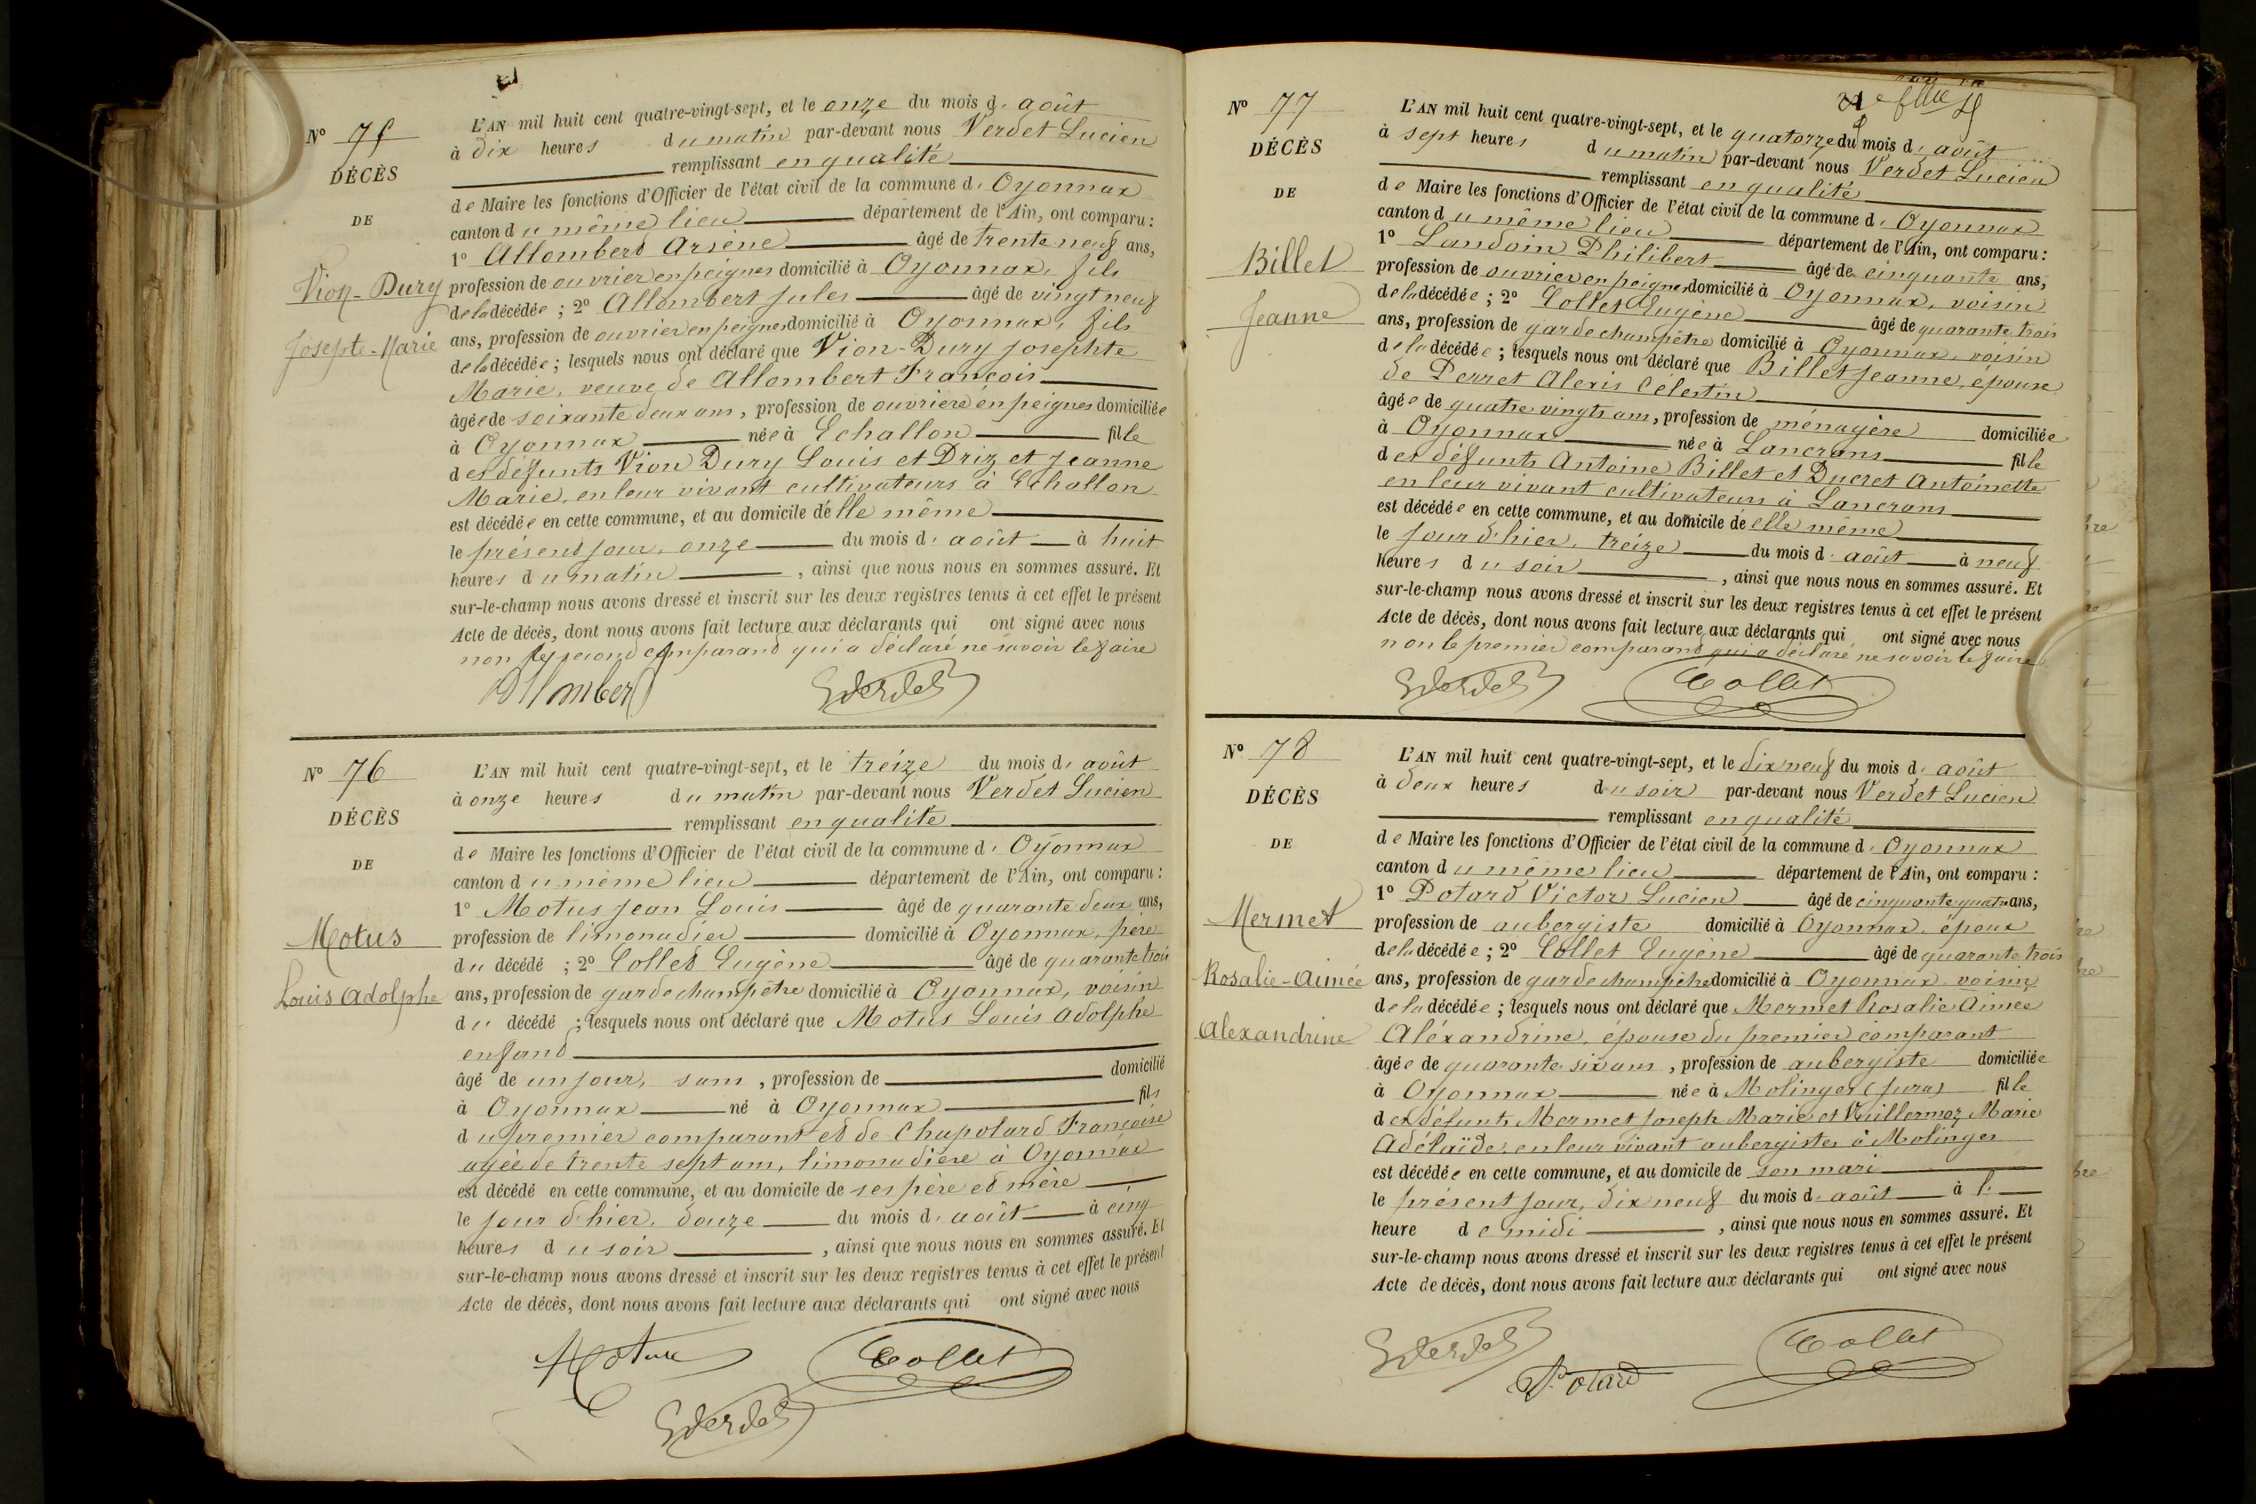 N° 75
DÉCÈS
DE
Vion-Dury
Josephte-Marie
L'AN mil huit cent quatre-vingt-sept, et le onze du mois d' août
à dix heures du matin par-devant nous Verdet Lucien
remplissant en qualité
de Maire les fonctions d'Officier de l'état civil de la commune d' Oyonnax
canton du même lieu département de l'Ain, ont comparu :
1° Allombert Arsène âgé de trente neuf ans,
profession de ouvrier en peignes domicilié à Oyonnax, fils
de la décédée ; 2° Allombert Jules âgé de vingt neuf
ans, profession de ouvrier en peignes domicilié à Oyonnax, fils
de la décédée ; lesquels nous ont déclaré que Vion-Dury Josephte
Marie, veuve de Allombert François
âgée de soixante deux ans, profession de ouvrière en peignes domiciliée
à Oyonnax née à Echallon fille
des défunts Vion Dury Louis et Driz et Jeanne
Marie, en leur vivant cultivateurs à Echallon
est décédée en cette commune, et au domicile delle même
le présent jour, onze du mois d' août à huit
heures du matin, ainsi que nous nous en sommes assuré. Et
sur-le-champ nous avons dressé et inscrit sur les deux registres tenus à cet effet le présent
Acte de décès, dont nous avons fait lecture aux déclarants qui ont signé avec nous
non le second comparand qui a déclaré ne savoir le faire
Allombert Verdet
N° 76
DÉCÈS
DE
Motus
Louis Adolphe
L'AN mil huit cent quatre-vingt-sept, et le treize du mois d' août
à onze heures du matin par-devant nous Verdet Lucien
remplissant en qualité
de Maire les fonctions d'Officier de l'état civil de la commune d' Oyonnax
canton du même lieu département de l'Ain, ont comparu :
1° Motus Jean Louis âgé de quarante deux ans,
profession de limonadier domicilié à Oyonnax, père
du décédé ; 2° Collet Eugène âgé de quarante trois
ans, profession de garde champêtre domicilié à Oyonnax, voisin
du décédé ; lesquels nous ont déclaré que Motus Louis Adolphe
enfand
âgé de un jour, sans, profession de domicilié
à Oyonnax né à Oyonnax fils
du premier comparant et de Chapotard Françoise
agée de trente sept ans, limonadière à Oyonnax
est décédé en cette commune, et au domicile de ses père et mère
le jour d'hier, douze du mois d' août à cinq
heures du soir, ainsi que nous nous en sommes assuré. Et
sur-le-champ nous avons dressé et inscrit sur les deux registres tenus à cet effet le présent
Acte de décès, dont nous avons fait lecture aux déclarants qui ont signé avec nous
Motus Collet
Verdet
N° 77
DÉCÈS
DE
Billet
Jeanne
L'AN mil huit cent quatre-vingt-sept, et le quatorze du mois d' août
à sept heures du matin par-devant nous Verdet Lucien
remplissant en qualité
de Maire les fonctions d'Officier de l'état civil de la commune d' Oyonnax
canton du même lieu département de l'Ain, ont comparu :
1° Landoin Philibert âgé de cinquante ans,
profession de ouvrier en peignes domicilié à Oyonnax, voisin
de la décédée ; 2° Collet Eugène âgé de quarante trois
ans, profession de garde champêtre domicilié à Oyonnax, voisin
de la décédée ; lesquels nous ont déclaré que Billet Jeanne, épouse
de Perret Alexis Célestin
âgée de quatre vingts ans, profession de ménagère domiciliée
à Oyonnax née à Lancrans fille
des défunts Antoine Billet et Ducret Antoinette
en leur vivant cultivateurs à Lancrans
est décédée en cette commune, et au domicile de elle même
le jour d'hier, treize du mois d' août à neuf
heures du soir, ainsi que nous nous en sommes assuré. Et
sur-le-champ nous avons dressé et inscrit sur les deux registres tenus à cet effet le présent
Acte de décès, dont nous avons fait lecture aux déclarants qui ont signé avec nous
non le premier comparand qui a déclaré ne savoir le faire
Verdet Collet
N° 78
DÉCÈS
DE
Mermet
Rosalie-Aimée
Alexandrine
L'AN mil huit cent quatre-vingt-sept, et le dix neuf du mois d' août
à deux heures du soir par-devant nous Verdet Lucien
remplissant en qualité
de Maire les fonctions d'Officier de l'état civil de la commune d' Oyonnax
canton du même lieu département de l'Ain, ont comparu :
1° Potard Victor Lucien âgé de cinquante quatre ans,
profession de aubergiste domicilié à Oyonnax, époux
de la décédée ; 2° Collet Eugène âgé de quarante trois
ans, profession de garde champêtre domicilié à Oyonnax voisin
de la décédée ; lesquels nous ont déclaré que Mermet Rosalie Aimée
Aléxandrine, épouse du premier comparant
âgée de quarante six ans, profession de aubergiste domiciliée
à Oyonnax née à Molinges (Jura) fille
des défunts Mermet Joseph Marie et Vuillermoz Marie
Adélaïde, en leur vivant aubergistes à Molinges
est décédée en cette commune, et au domicile de son mari
le présent jour, dix neuf du mois d' août à l'
heure de midi, ainsi que nous nous en sommes assuré. Et
sur-le-champ nous avons dressé et inscrit sur les deux registres tenus à cet effet le présent
Acte de décès, dont nous avons fait lecture aux déclarants qui ont signé avec nous
Verdet Potard Collet